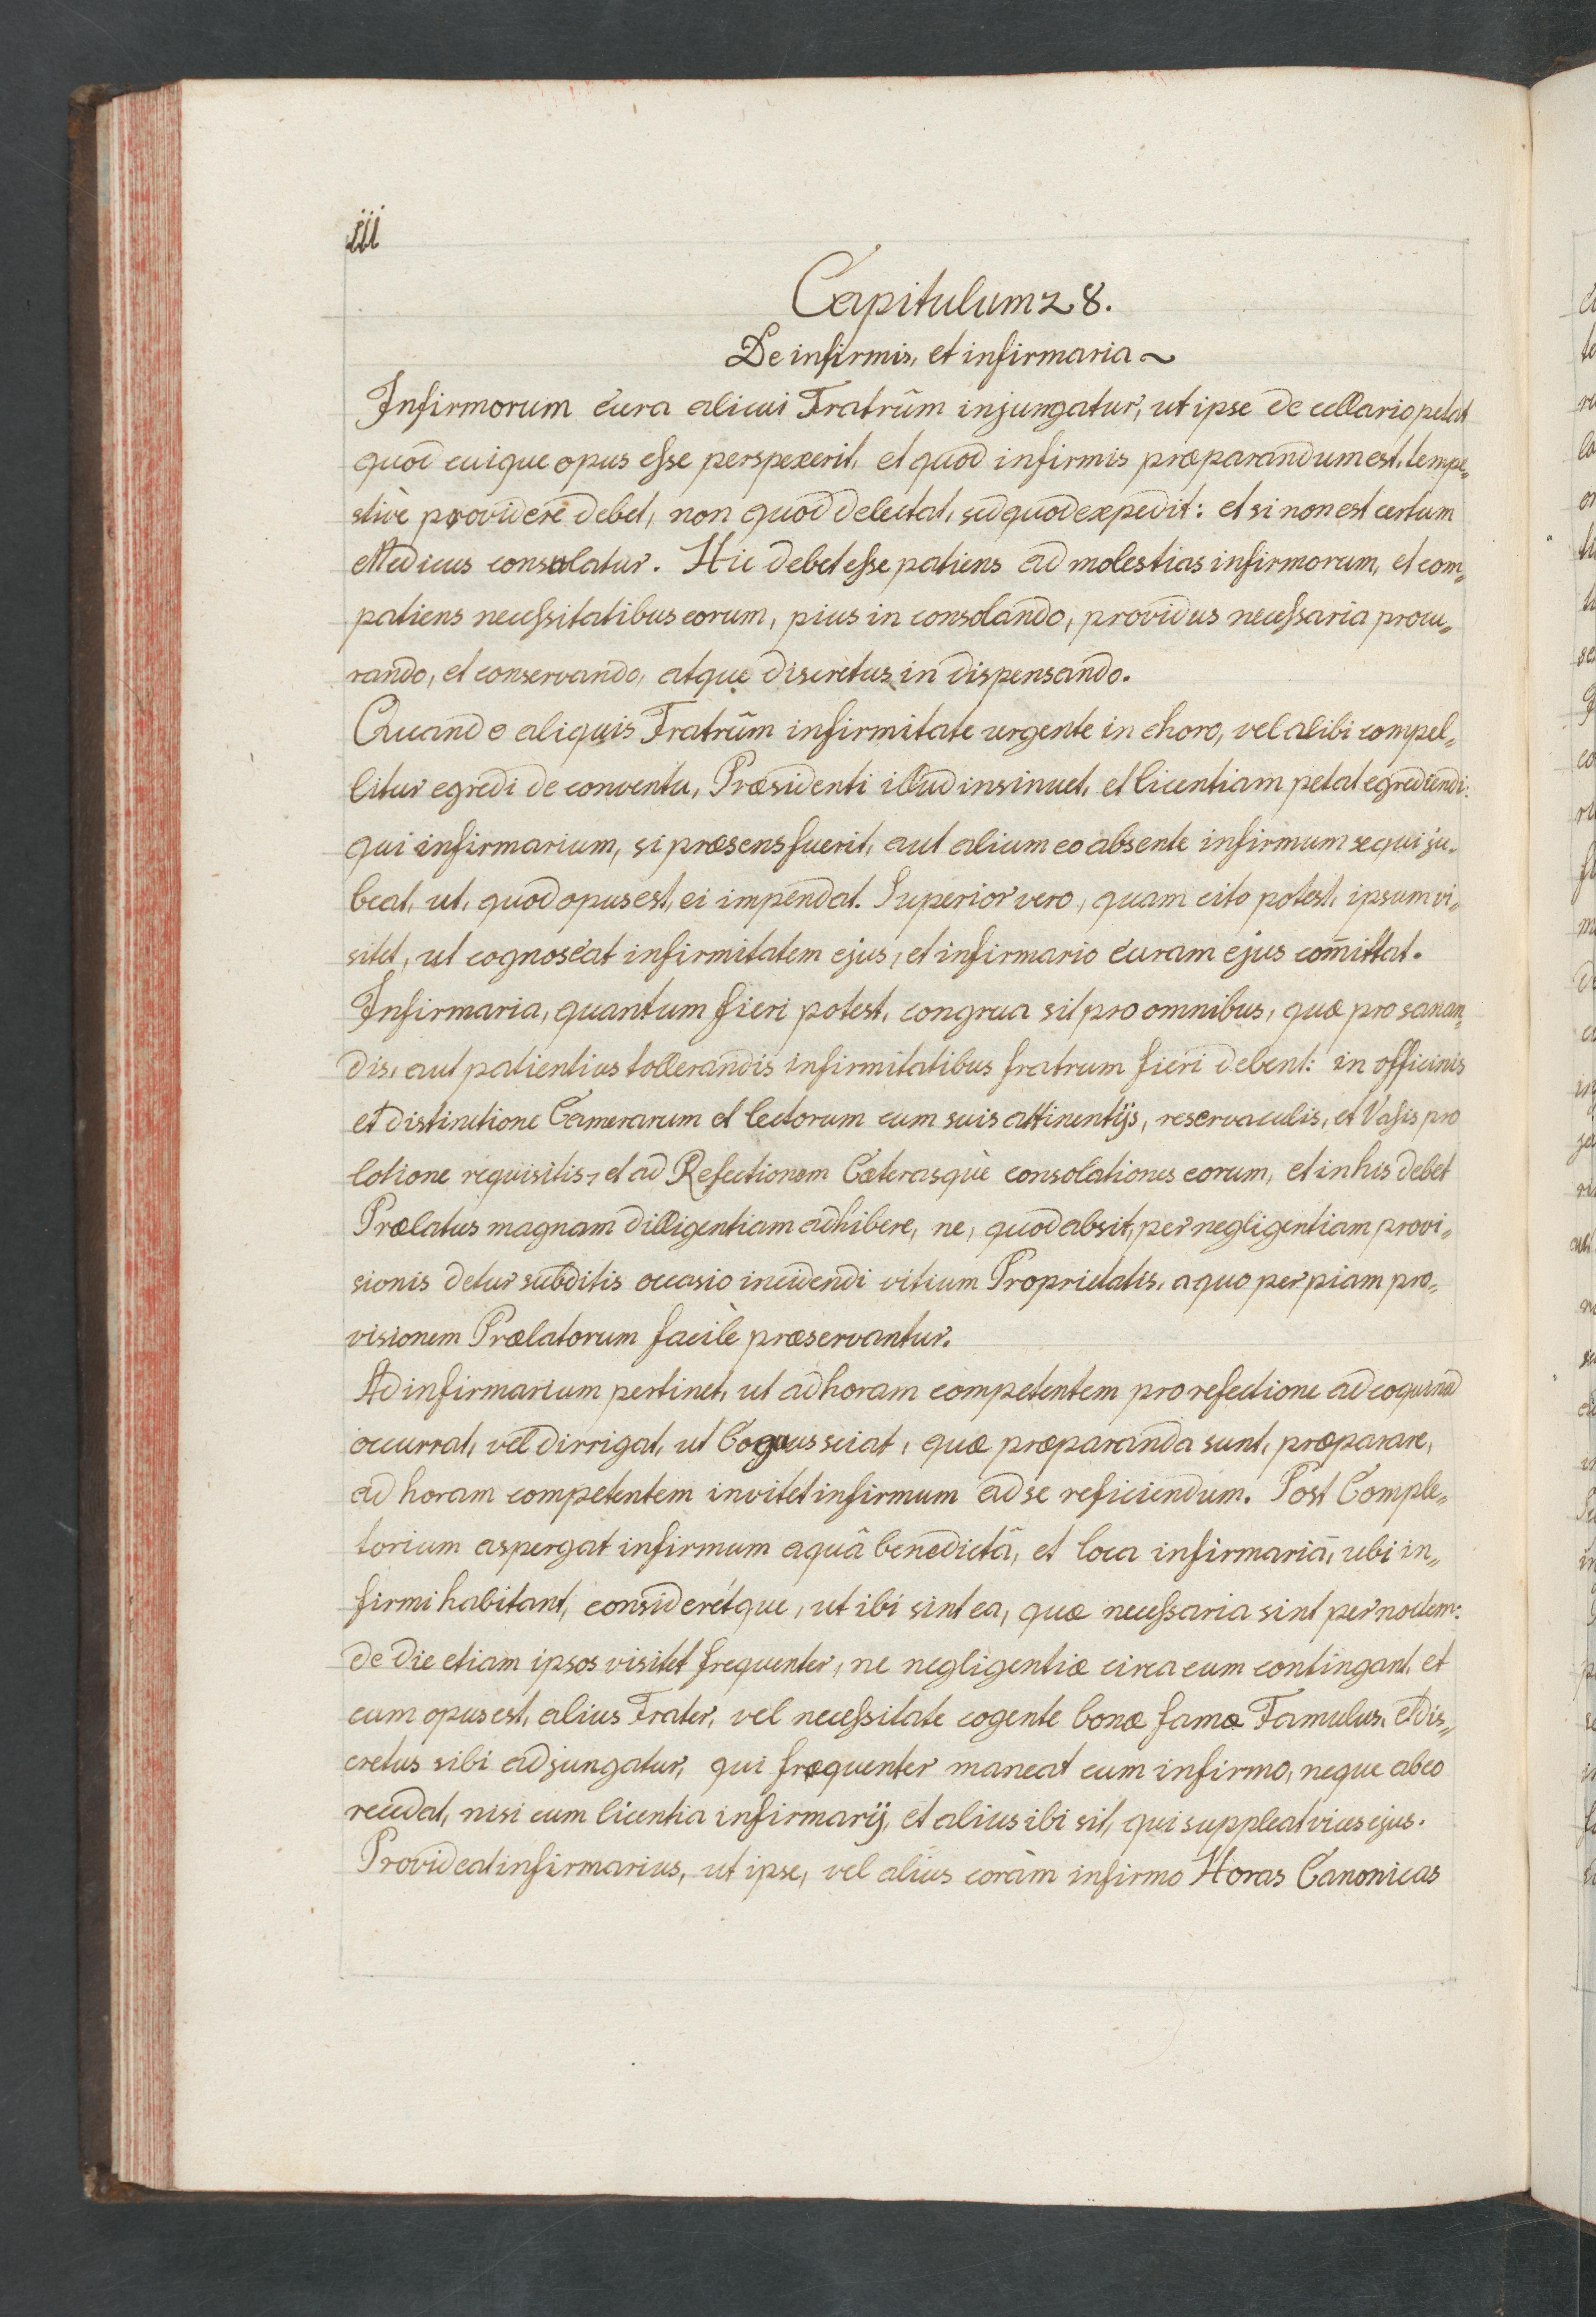 iii
Capitulum 28.
De infirmis, et infirmaria ~
Infirmorum cura alicui Fratrũm injungatur, ut ipse de cellario petat
quod cuique opus esse perspexerit, et quod infirmis præparandum est, tempe„
stivè providere debet, non quod delectat, sed quod expedit: et si non est certum
Medicus consulatur. Hic debet esse patiens ad molestias infirmorum, et com„
patiens necessitatibus eorum, pius in consolando, providus necessaria procu„
rando, et conservando, atque discretus in dispensando.
Quando aliquis Fratrũm infirmitate urgente in choro, vel alibi compel„
litur egredi de conventu, Præsidenti illud insinuet, et licentiam petat egrediendi:
qui infirmarium, si præsens fuerit, aut alium eo absente infirmum sequi ju„
beat, ut, quod opus est, ei impendat. Superior vero, quam cito potest, ipsum vi„
sitet, ut cognoscat infirmitatem ejus, et infirmario curam ejus com̃ittat.
Infirmaria, quantum fieri potest, congrua sit pro omnibus, quæ pro sanan„
dis, aut patientius tollerandis infirmitatibus fratrum fieri debent: in officinis
et distinctione Camerarum et lectorum cum suis attinentijs, reservaculis, et Vasis pro
lotione requisitis, et ad Refectionem Cæterasquè consolationes eorum, et in his debet
Prælatus magnam dilligentiam adhibere, ne, quod absit, per negligentiam provi„
sionis detur subditis occasio incidendi vitium Proprietatis, a quo per piam pro„
visionem Prælatorum facilè præservantur.
Ad infirmarium pertinet, ut ad horam competentem pro refectione ad coquinã
occurrat, vel dirrigat, ut Coquus sciat, quæ præparanda sunt, præparare,
ad horam competentem invitet infirmum ad se reficiendum. Post Comple„
torium aspergat infirmum aquâ benedictâ, et loca infirmariã, ubi in„
firmi habitant, considerétque, ut ibi sint ea, quæ necessaria sint per noctem:
de die etiam ipsos visitet frequenter, ne negligentiæ circa eum contingant, et
cum opus est, alius Frater, vel necessitate cogente bonæ famæ Famulus, et dis„
cretus sibi adjungatur, qui fræquenter maneat cum infirmo, neque ab eo
recedat, nisi cum licentia infirmarij, et alius ibi sit, qui suppleat vices ejus.
Provideat infirmarius, ut ipse, vel alius coràm infirmo Horas Canonicas